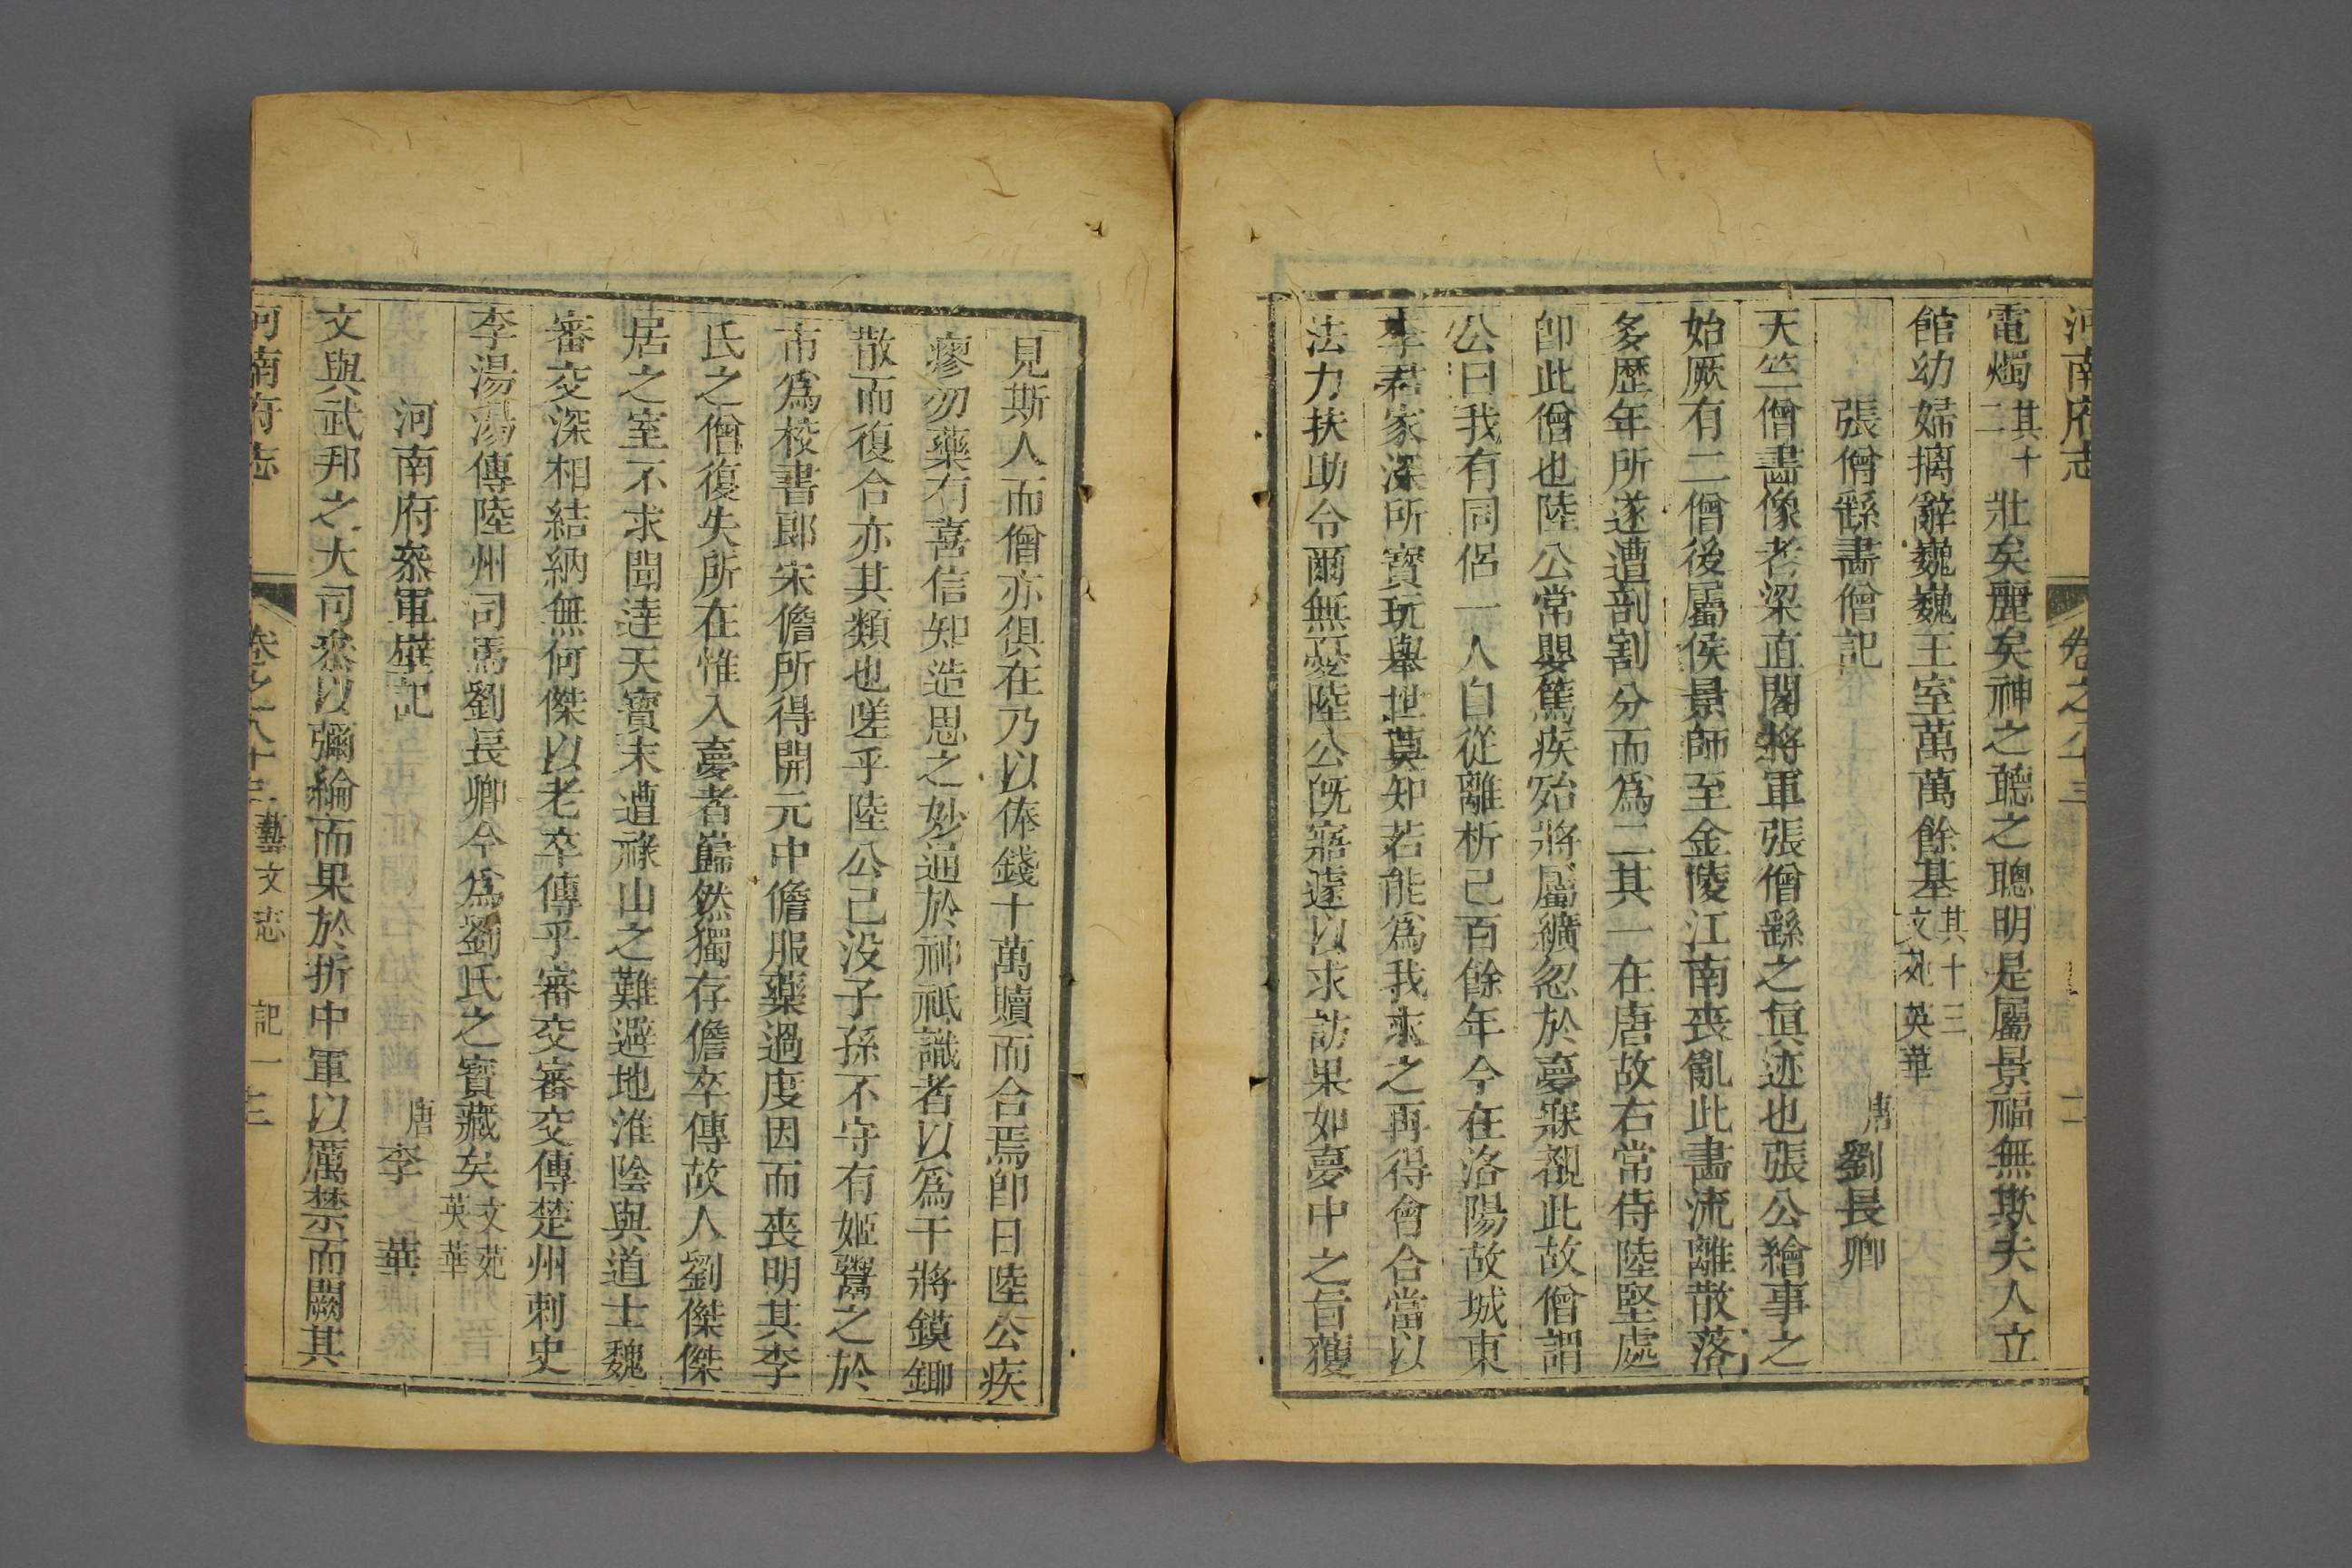 河南府志 卷之八十三
電燭其十二壯矣麗矣神之聽之聰明是屬景福無欺夫人立
館幼婦摛辭巍巍王室萬萬餘基其十三文苑英華
張僧繇畵僧記
唐劉長卿
天竺僧畵像者梁直閣將軍張僧繇之眞迹也張公繪事之
始厥有二僧後屬侯景師至金陵江南喪亂此畵流離散落
多歷年所遂遭剖割分而爲二其一在唐故右常侍陸堅處
卽此僧也陸公常嬰篤疾殆將屬纊忽於夢寐覩此故僧謂
公曰我有同侶一人自從離析已百餘年今在洛陽故城東
李君家深所寳玩舉世莫知若能爲我求之再得會合當以
法力扶助令爾無憂陸公旣寤遽以求訪果如夢中之旨獲
見斯人而僧亦俱在乃以俸錢十萬贖而合焉卽日陸公疾
瘳勿藥有喜信知造思之妙通於神祇識者以爲干將鏌鎁
散而復合亦其類也嗟乎陸公已没子孫不守有姬鬻之於
市爲校書郎宋儋所得開元中儋服藥過度因而喪明其李
氏之僧復失所在惟入夢者巋然獨存儋卒傳故人劉傑傑
居之室不求聞達天寶末遭祿山之難避地淮陰與道士魏
審交深相結納無何傑以老卒傳乎審交審交傳楚州刺史
李湯湯傳陸州司馬劉長卿今爲劉氏之寶藏矣文苑英華
河南府叅軍壁記
唐李華
文與武邦之大司叅以彌綸而果於折中軍以厲禁而闕其
河南府志 卷之八十三 藝文志 記一 十三